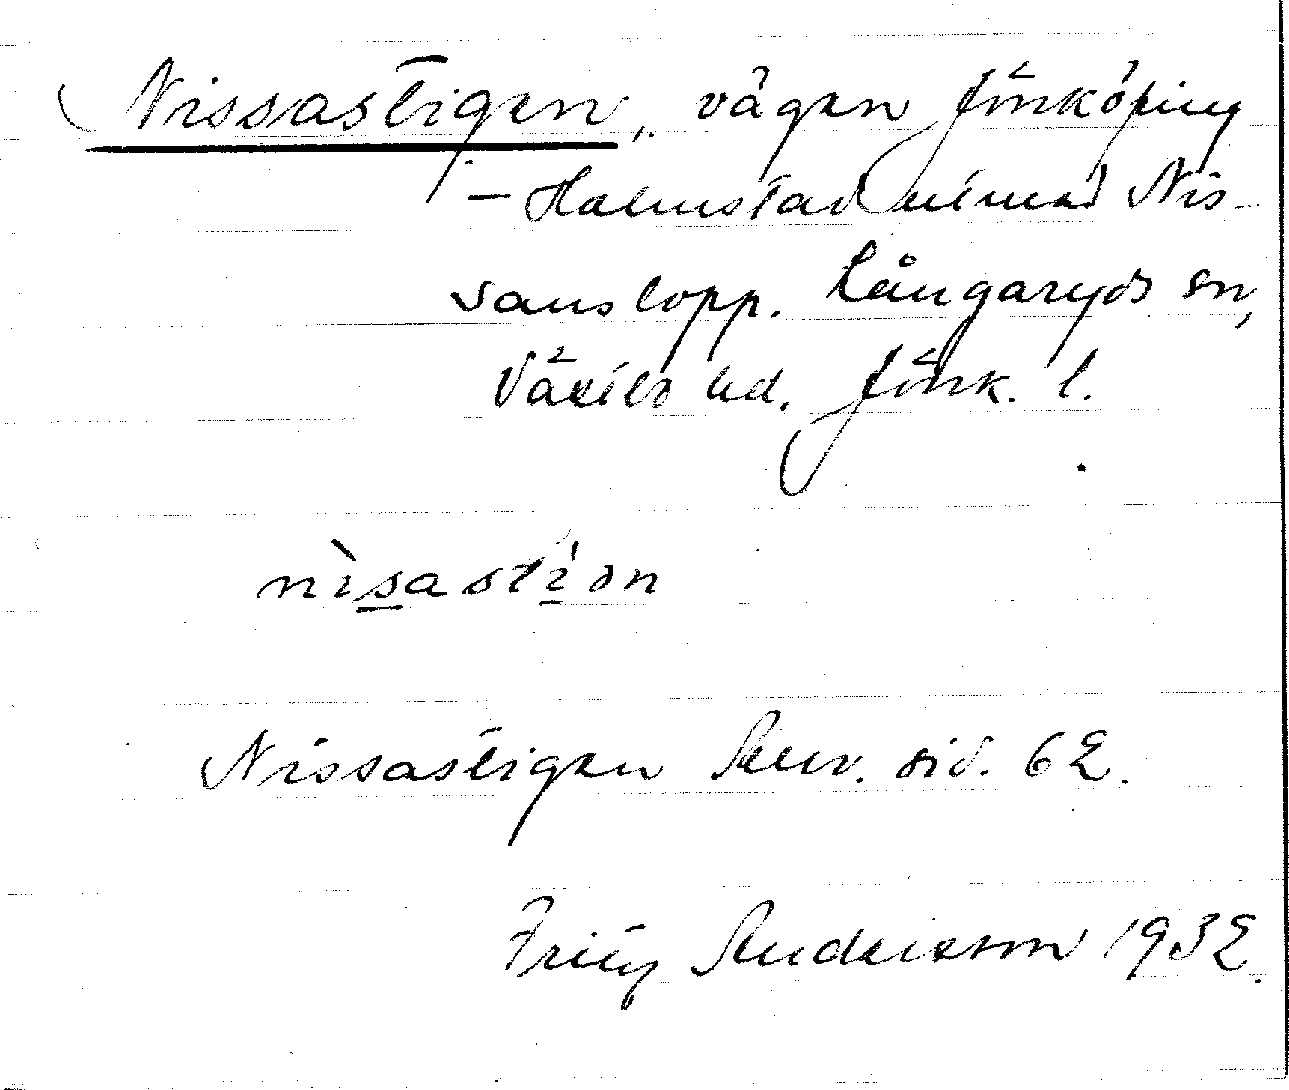 Nissastigen, vägen Jönköping
– Halmstad utmed Nis-
sans lopp. Långaryds sn,
Västbo hd. Jönk. l.
nìsastíən
Nissastigen Anv. sid. 62.
Fritz Andersson 1932.